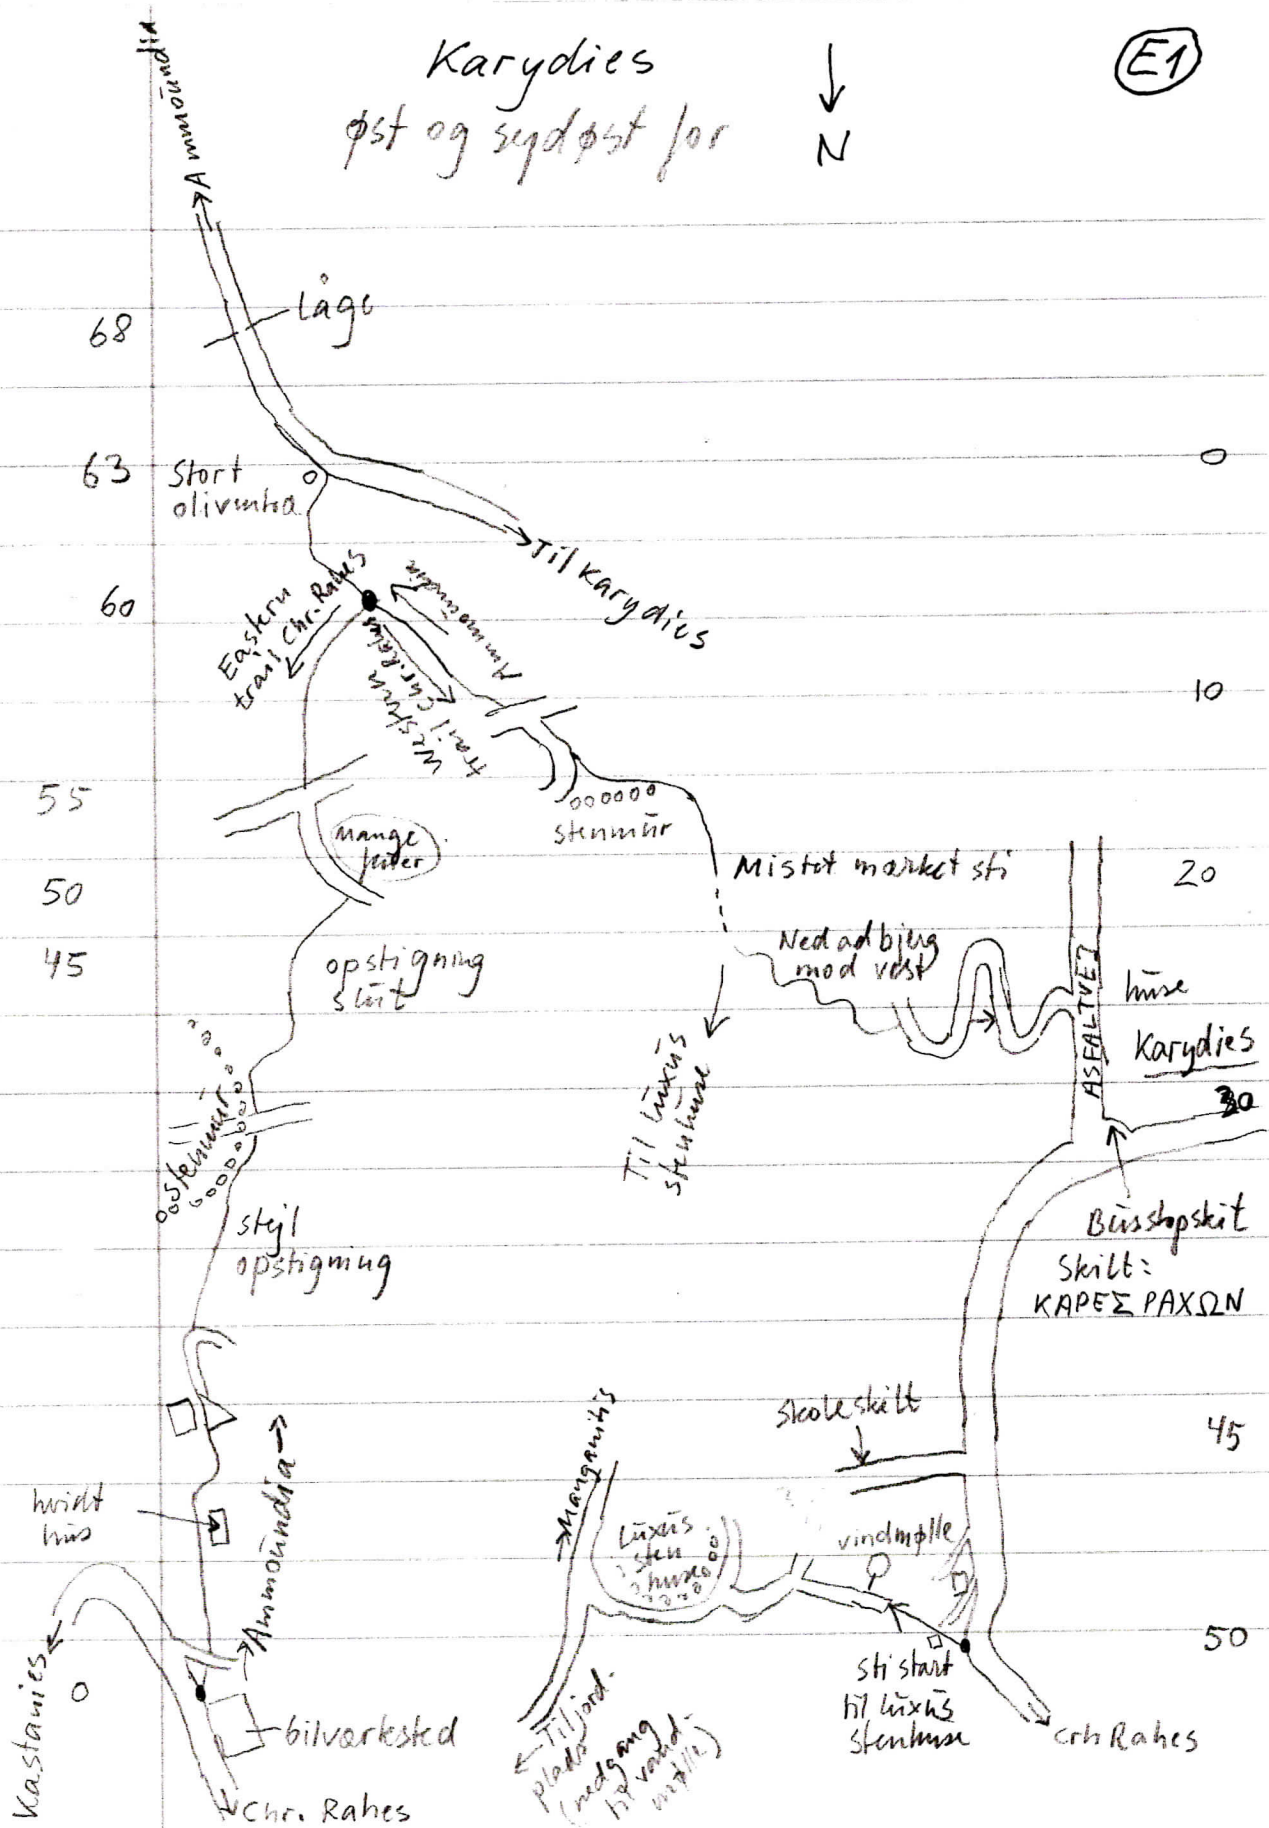 Karydies
øst og sydøst for
N
E1
Ammoúndia
Låge
68
63
0
Stort
oliventræ
Til Karydies
60
Eastern
trail Chr. Rahes
Western
trail Chr. Rahes
Ammoúndia
10
55
mange
stenmúr
Mistet market sti
20
50
45
opstigning
slút
Nedad bjerg
mod vest
ASFALTVEJ
húse
Karydies
30
Til lúxús
stenhúse
stenmúr
stejl
opstigning
Bússtopskilt
Skilt:
ΚΑΡΕΣ ΡΑΧΩΝ
Skoleskilt
45
Manganitis
Ammoúndia
hvidt
hús
Lúxús
sten
húse
vindmølle
50
Kastanies
0
bilværksted
Chr. Rahes
Til jord-
plads
(nedgang
til vand-
mølle)
sti start
til lúxús
stenhúse
Crh Rahes